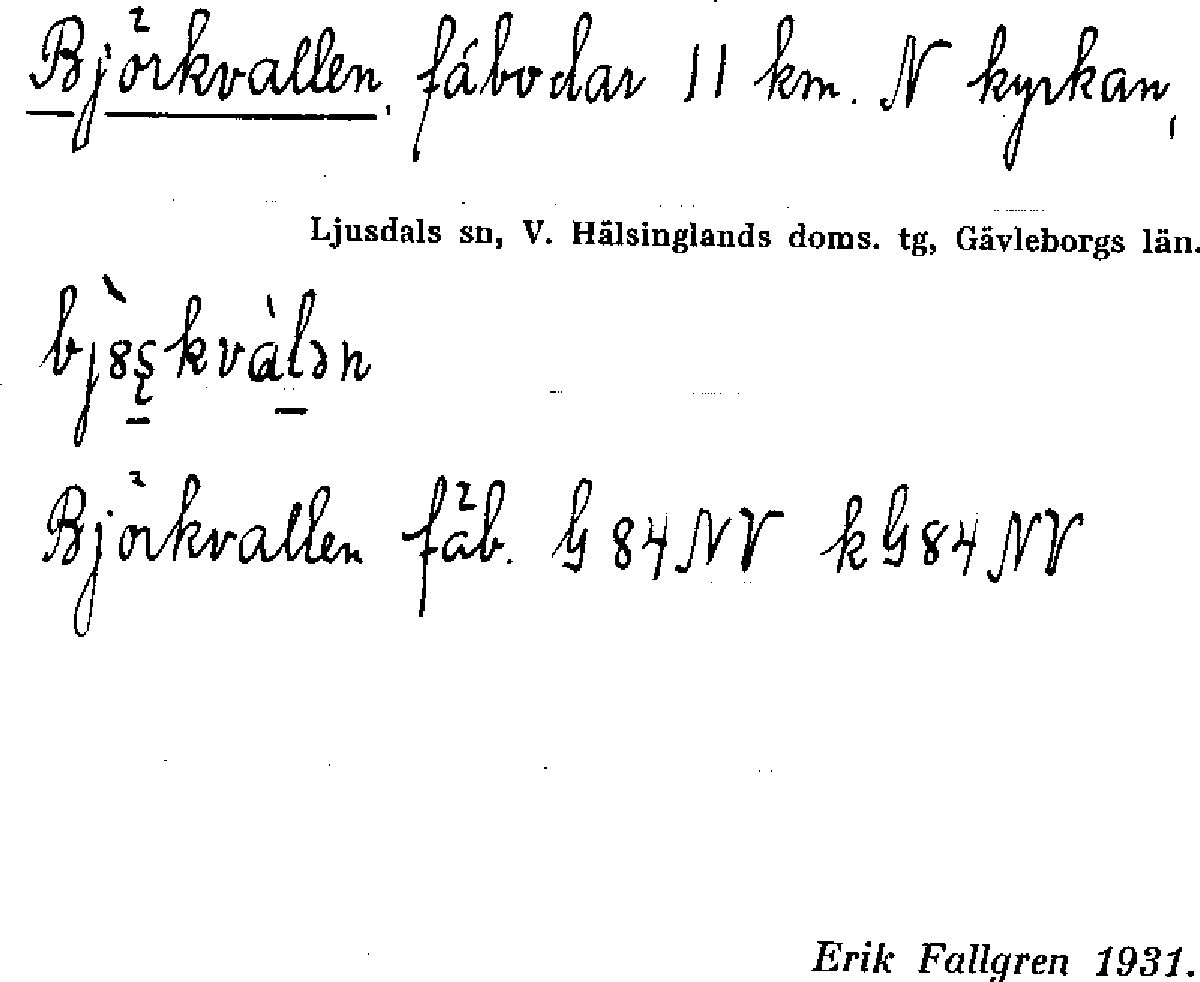 Björkvallen, fäbodar 11 km. N kyrkan,
Ljusdals sn, V. Hälsinglands doms. tg, Gävleborgs län.
Björkvallen fäb. G 84 NV k G 84 NV
Erik Fallgren 1931.